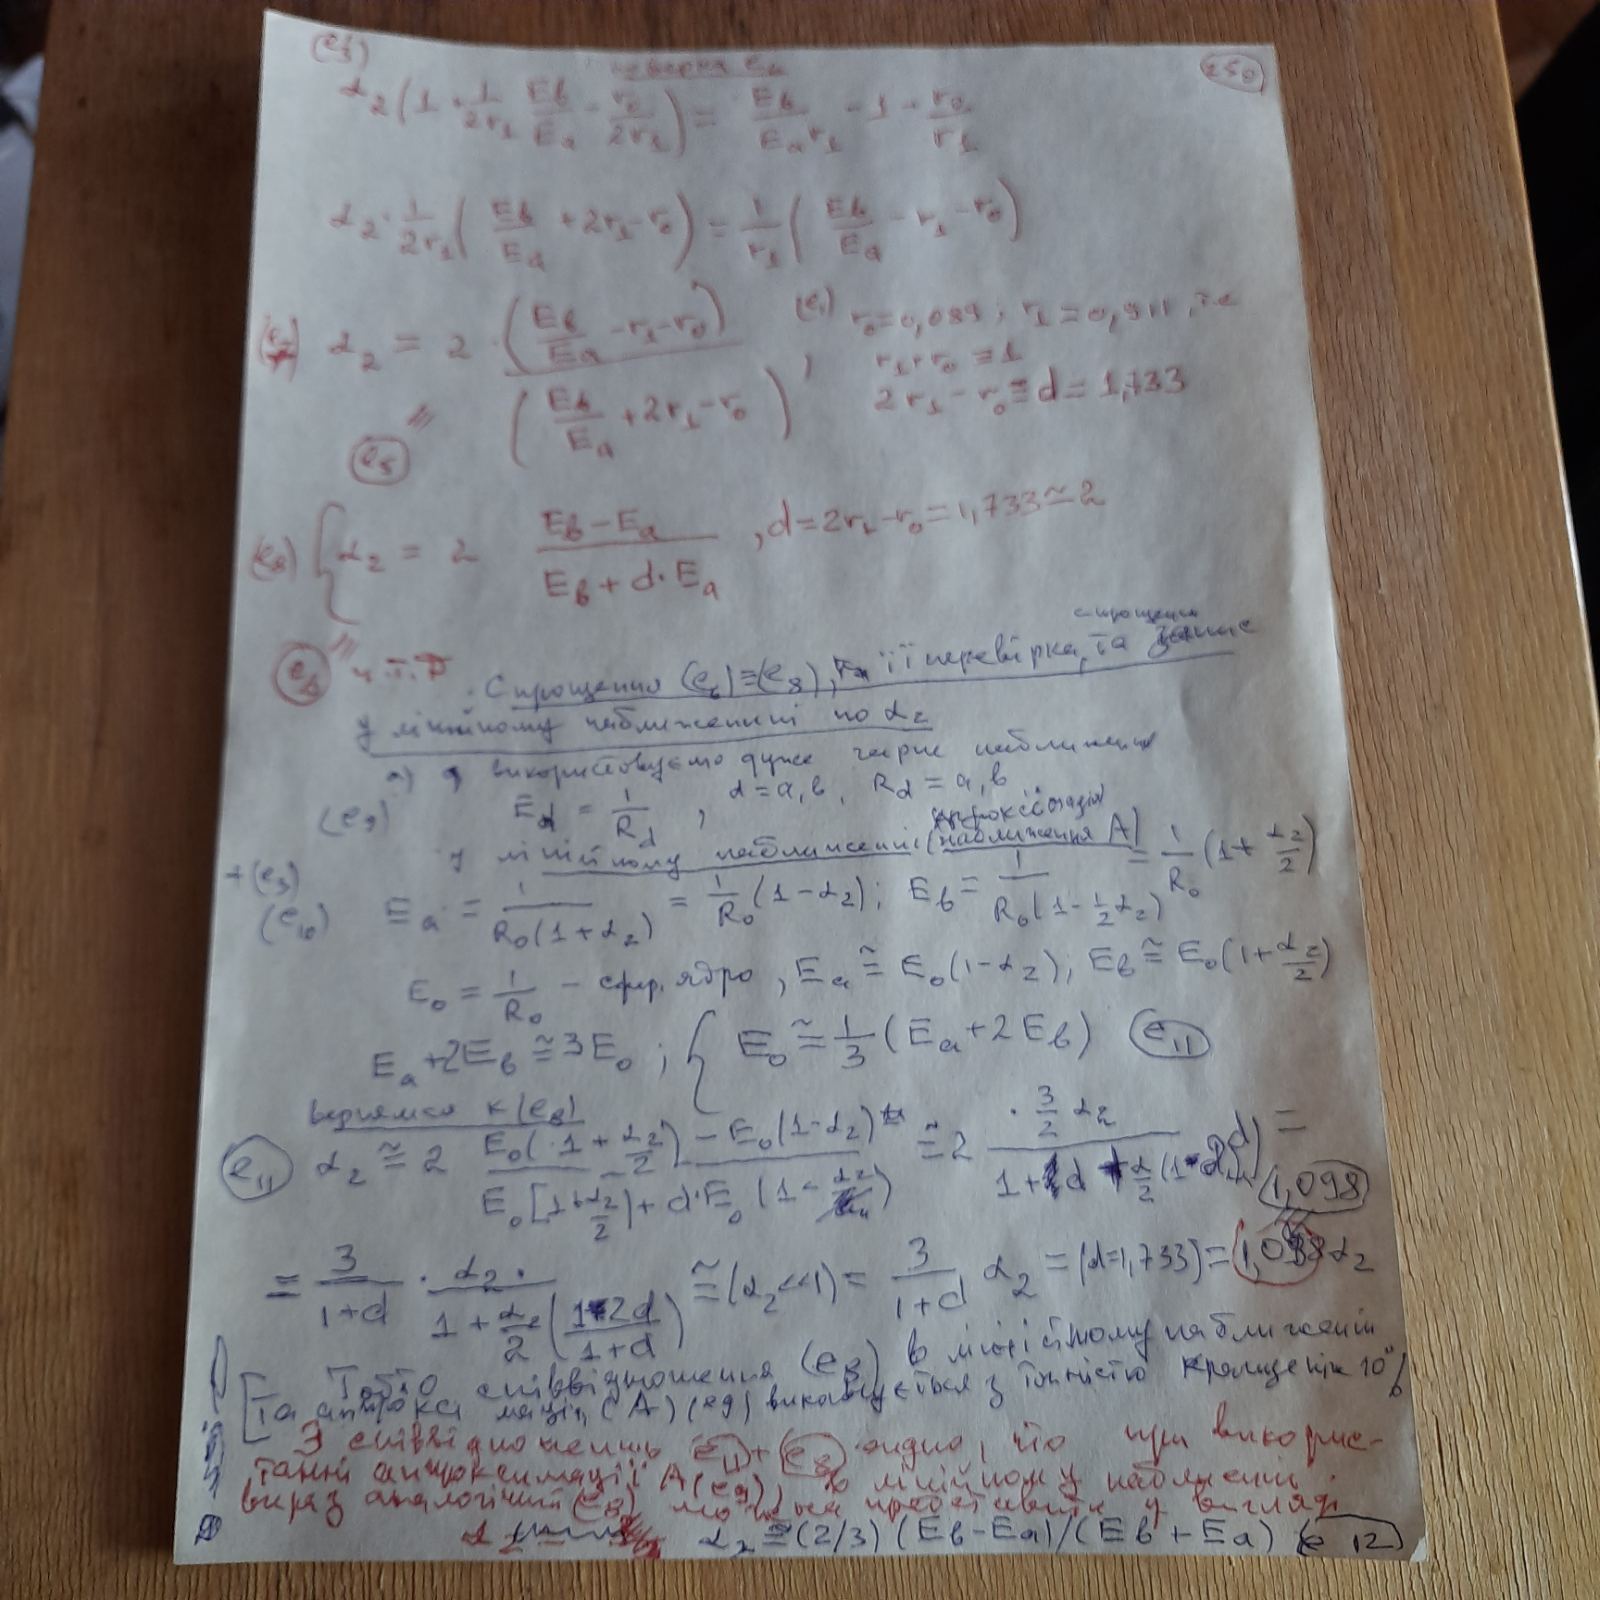 (e₃)
перверка e₆
250
α₂(1 + 1/2r₁ Eв/Ea - r₀/2r₁) = Eв/Ea r₁ - 1 - r₀/r₁
α₂ · 1/2r₁ (Eв/Ea + 2r₁ - r₀) = 1/r₁ (Eв/Ea - r₁ - r₀)
α₂ = 2 · (Eв/Ea - r₁ - r₀) / (Eв/Ea + 2r₁ - r₀) , (e₁) r₀=0,089; r₁=0,911, т.е
r₁+r₀ ≡ 1
2r₁ - r₀ ≡ d = 1,733
e₅
(e₈) { α₂ = 2 (Eв - Ea) / (Eв + d·Ea) , d = 2r₁ - r₀ = 1,733 ≃ 2
e₆ ч.т.д
спрощений
Спрощення (e₆)≡(e₈), її перевірка, та запис
у лінійному наближенні по α₂
а) використовуємо дуже гарне наближення
(e₉) Eα = 1/Rα , α = a, в, Rα = a, в
апроксімація
у лінійному наближенні (наближення А)
+(e₃)
(e₁₀) Ea = 1/R₀(1+α₂) = 1/R₀ (1-α₂); Eв = 1/R₀(1-½α₂) = 1/R₀ (1+α₂/2)
E₀ = 1/R₀ - сфер. ядро, Ea ≅ E₀(1-α₂); Eв ≅ E₀(1+α₂/2)
Ea+2Eв ≅ 3E₀ ; { E₀ ≅ 1/3 (Ea+2Eв) e₁₁
вернемся к (e₈)
e₁₁ α₂ ≅ 2 (E₀(1+α₂/2) - E₀(1-α₂)) / (E₀[1+α₂/2] + d·E₀(1-α₂)) ≅ 2 · 3/2 α₂ / (1+d+α/2(1-2d)) =
1,098
= 3/(1+d) · α₂ / (1+α₂/2((1-2d)/(1+d))) ≅ (α₂<<1) = 3/(1+d) α₂ = (d=1,733) = 1,098 α₂
Тобто співвідношення (e₈) в лінійному наближенні
та апроксимація (А) (e₉) виконується з точністю краще ніж 10%
З співвідношень e₁₁ + e₈ видно, що при викорис-
танні апроксимації А(e₉), в лінійному наближенні
вираз аналогічний (e₈) можна представити у вигляді:
α₂ ≅ (2/3) (Eв-Ea)/(Eв+Ea) (e 12)